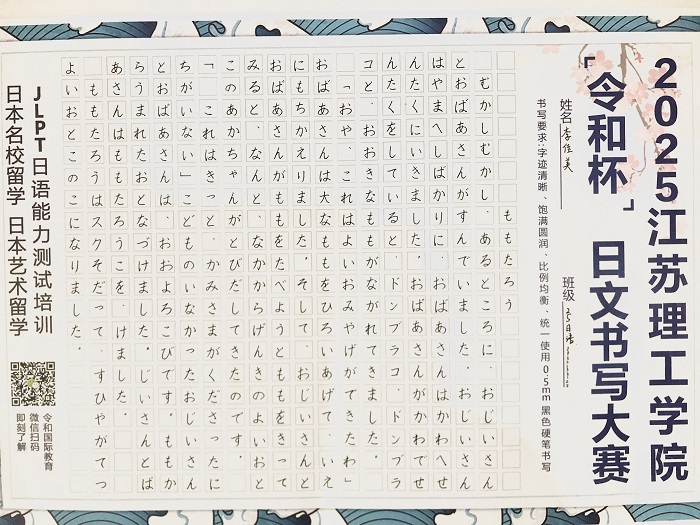 2025江苏理工学院
「令和杯」 日文书写大赛
姓名 李佳美 班级
书写要求:字迹清晰、饱满圆润、比例均衡、统一使用0.5mm黑色硬笔书写
ももたろう
むかしむかし、あるところに、おじいさん
とおばあさんがすんでいました。おじいさん
はやまへしばかりに、おばあさんはかわへせ
んたくにいきました。おばあさんがかわでせ
んたくをしていると、ドンブラコ、ドンブラ
コと、おおきなももがながれてきました。
「おや、これはよいおみやげができたわ」
おばあさんは大なももをひろいあげて、いえ
にもちかえりました。そして、おじいさんと
おばあさんがももをたべようとももをきって
みると、なんと、なかからげんきのよいおと
このあかちゃんがとびだしてきたのです。
「これはきっと、かみさまがくださったに
ちがいない」こどものいなかったおじいさん
とおばあさんは、おおよろこびです。ももか
らうまれたおとなづけました。じいさんとば
あさんはももたろうこを、けました。
ももたろうはスクそだって、すひやがてっ
よいおとこのこになりました。
JLPT日语能力测试培训
日本名校留学 日本艺术留学
令和国际教育
微信扫码
即刻了解